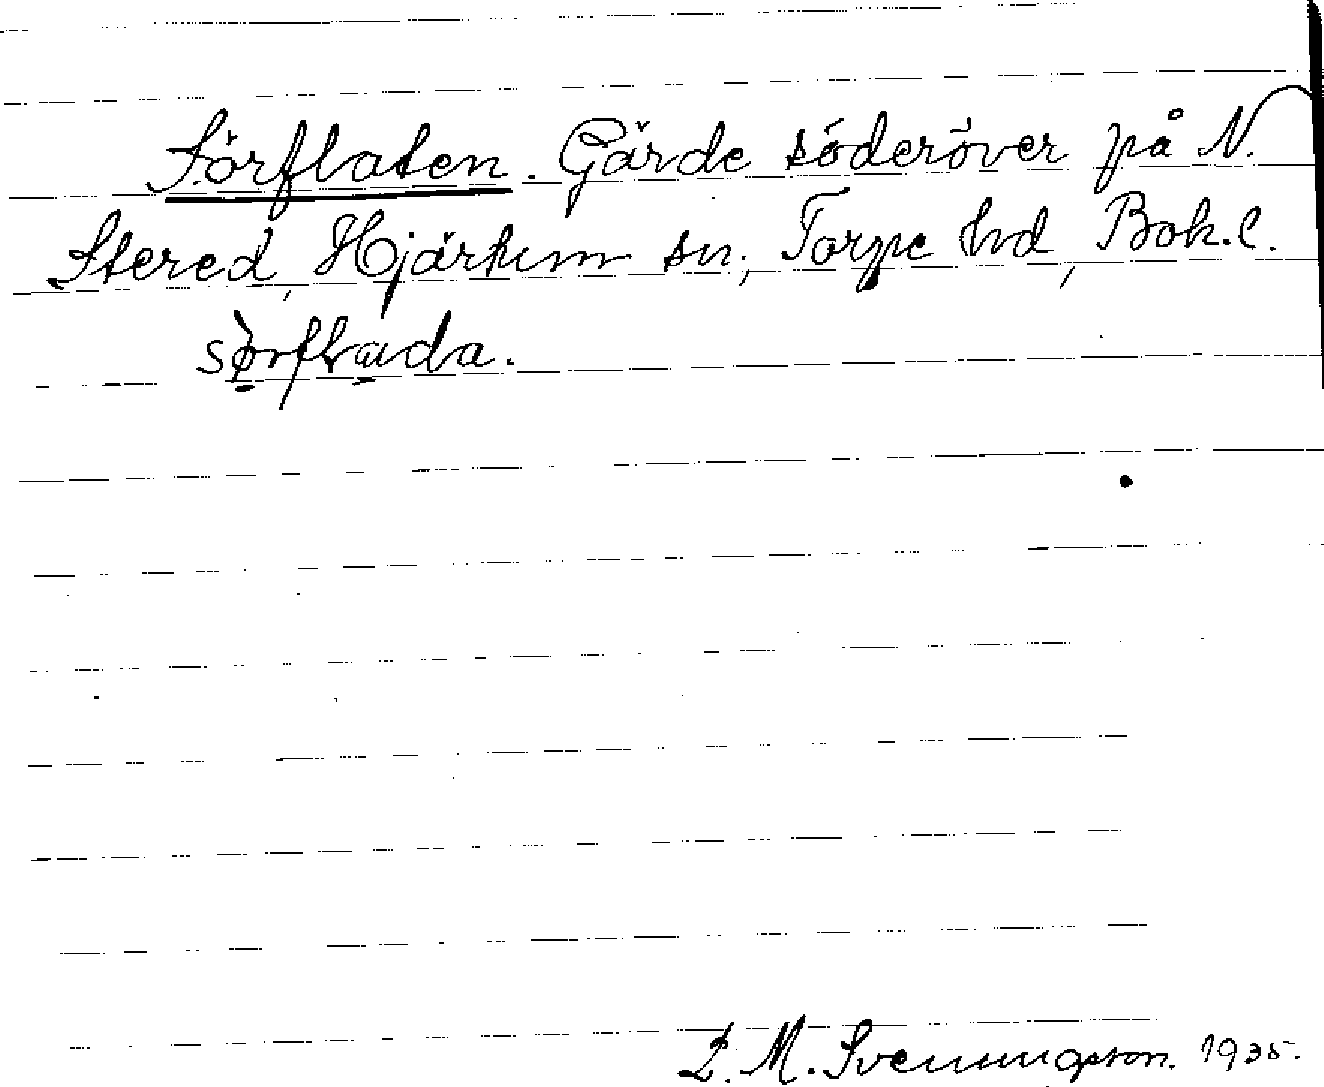 Sörflaten. Gärde söderöver på N.
Stered, Hjärtum sn, Torpe hd, Boh.l.
L. M. Svenungsson. 1935.